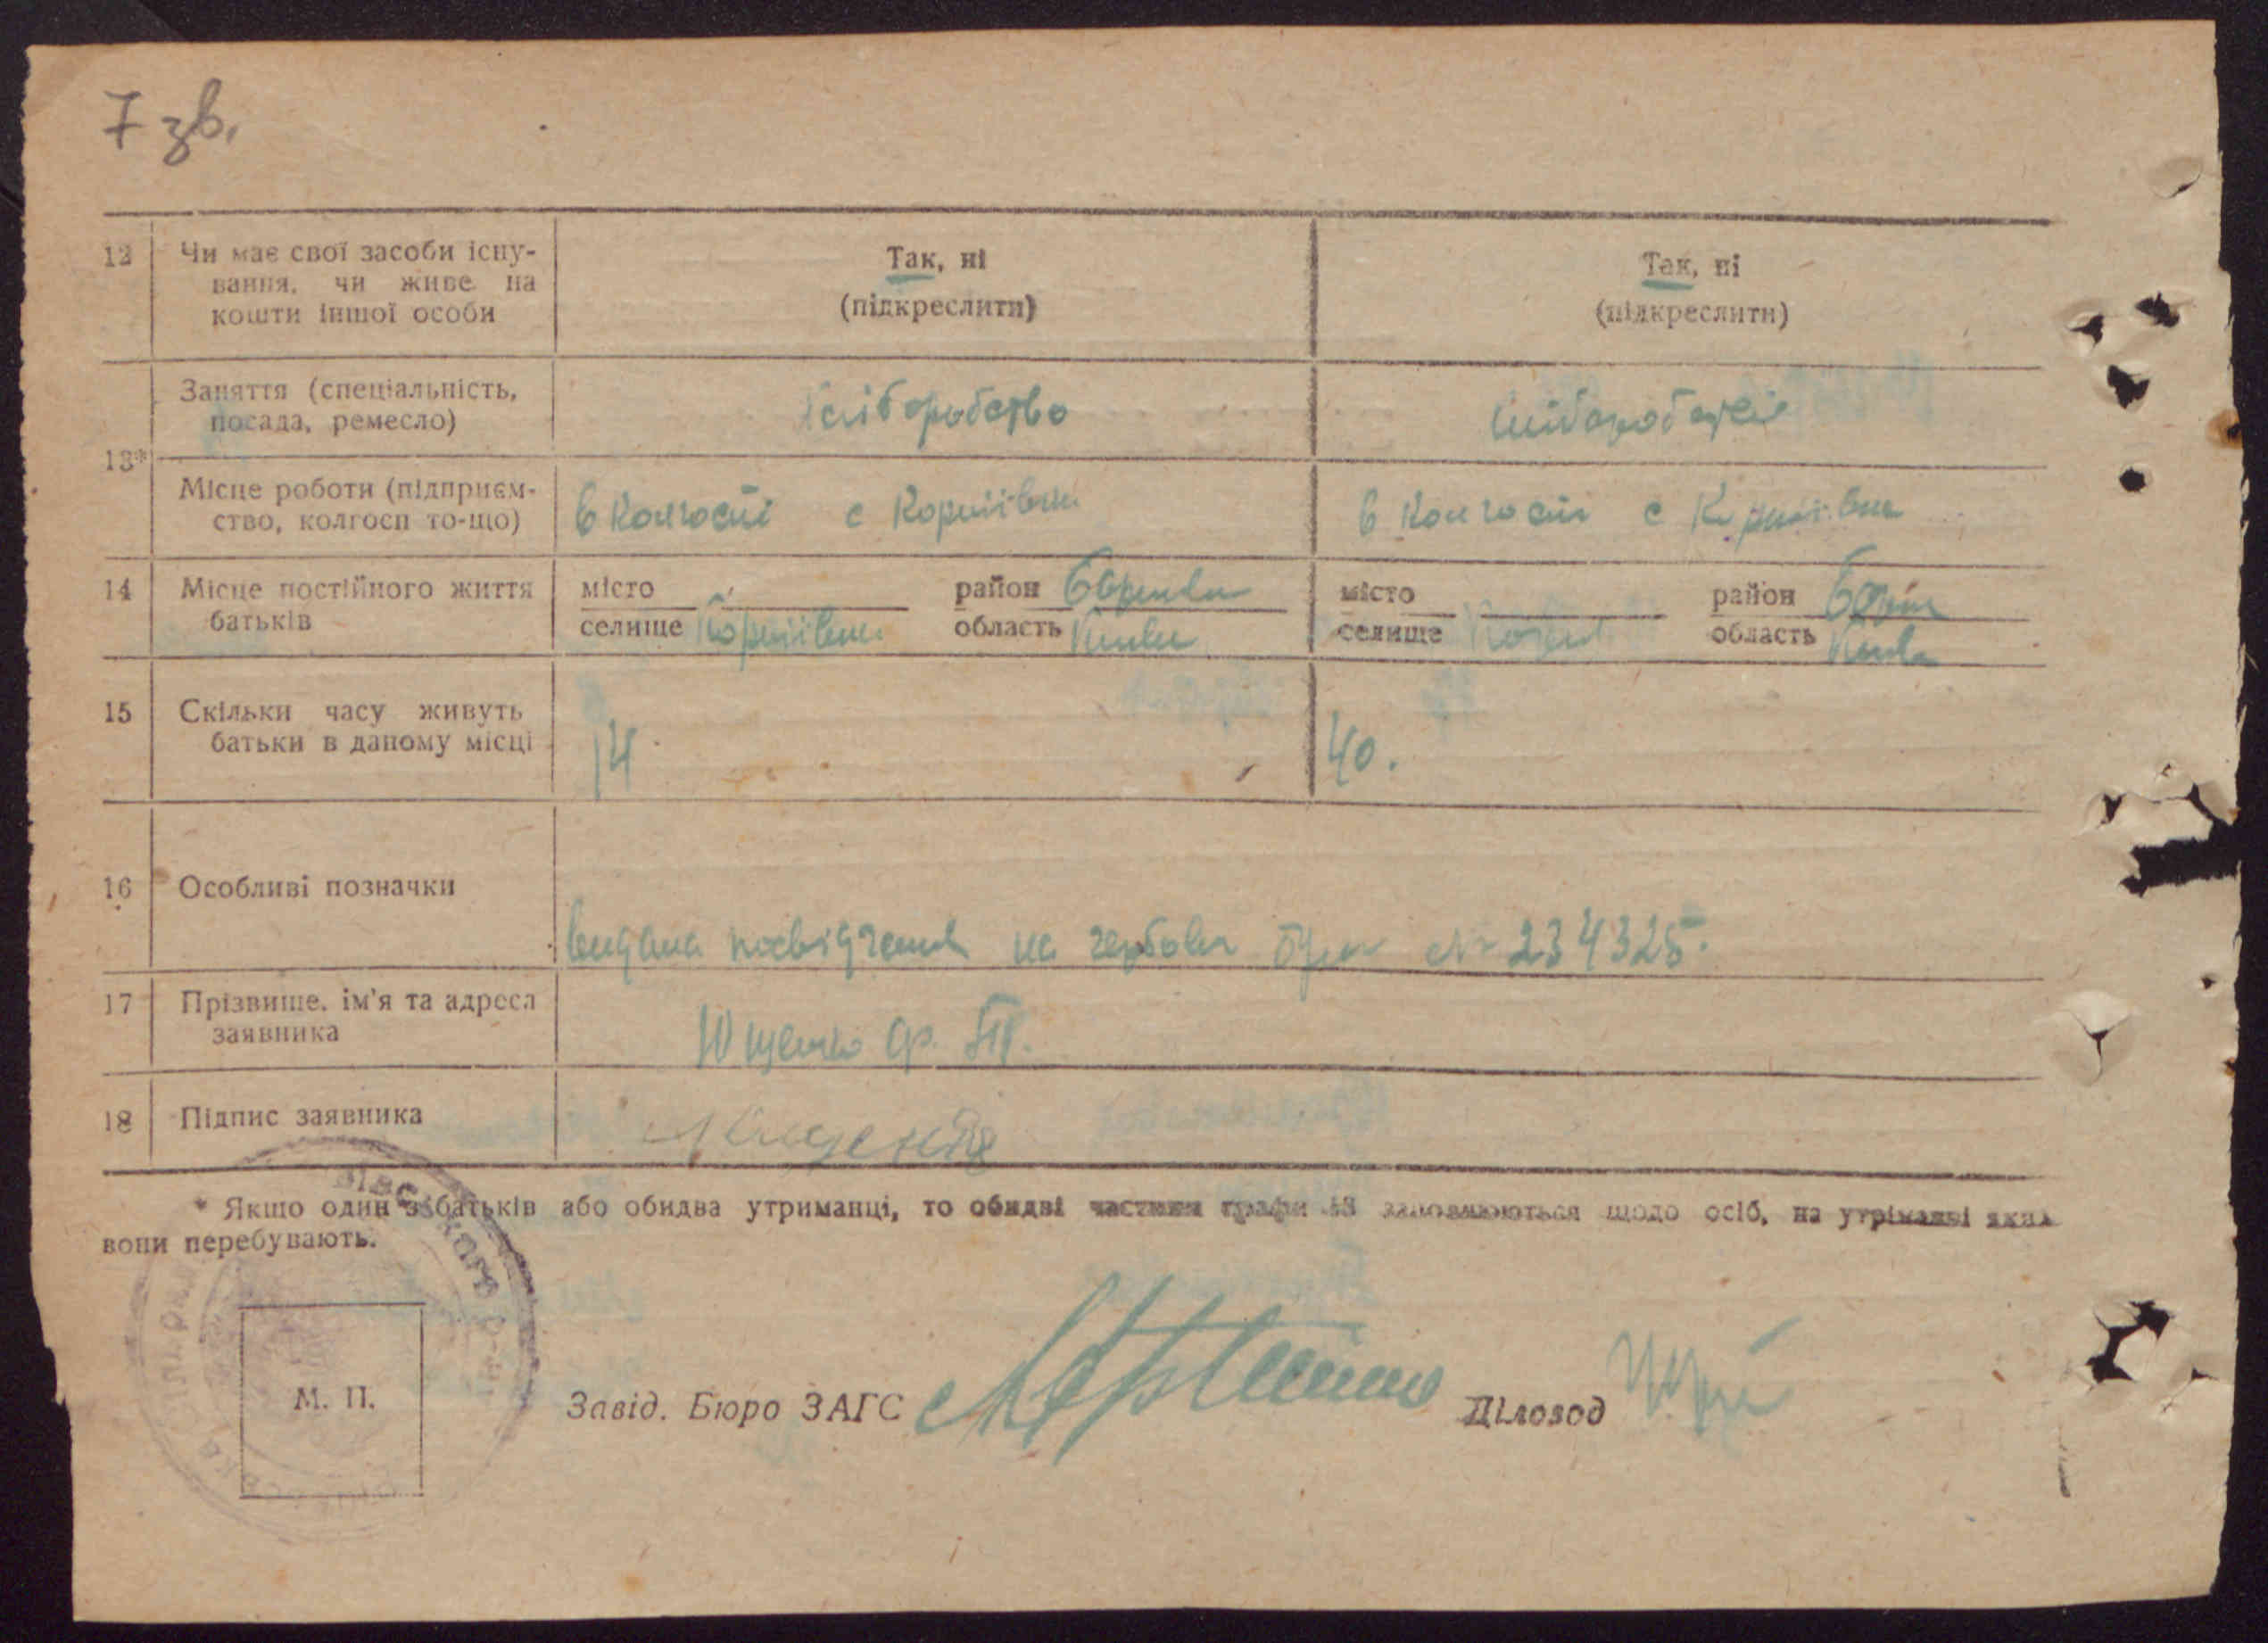 7 зв.
12 Чи має свої засоби існу-
вання, чи живе на
кошти іншої особи
Так, ні
(підкреслити)
Так, ні
(підкреслити)
13*
Заняття (спеціальність,
посада, ремесло)
хліборобство
Місце роботи (підприєм-
ство, колгосп то-що)
в колгоспі с Корніївки
в колгоспі с
14 Місце постійного життя
батьків
місто
селище Корніївки
район
область Київ
місто
селище
район
область
15 Скільки часу живуть
батьки в даному місці
14
40.
16 Особливі позначки
видана посвідчення на гербовім № 234325.
17 Прізвище, ім'я та адреса
заявника
Ющенко
18 Підпис заявника
* Якщо один з батьків або обидва утриманці, то обидві частини графи 13 заповнюються щодо осіб, на утриманні яких
вони перебувають.
М. П.
Завід. Бюро ЗАГС
Діловод